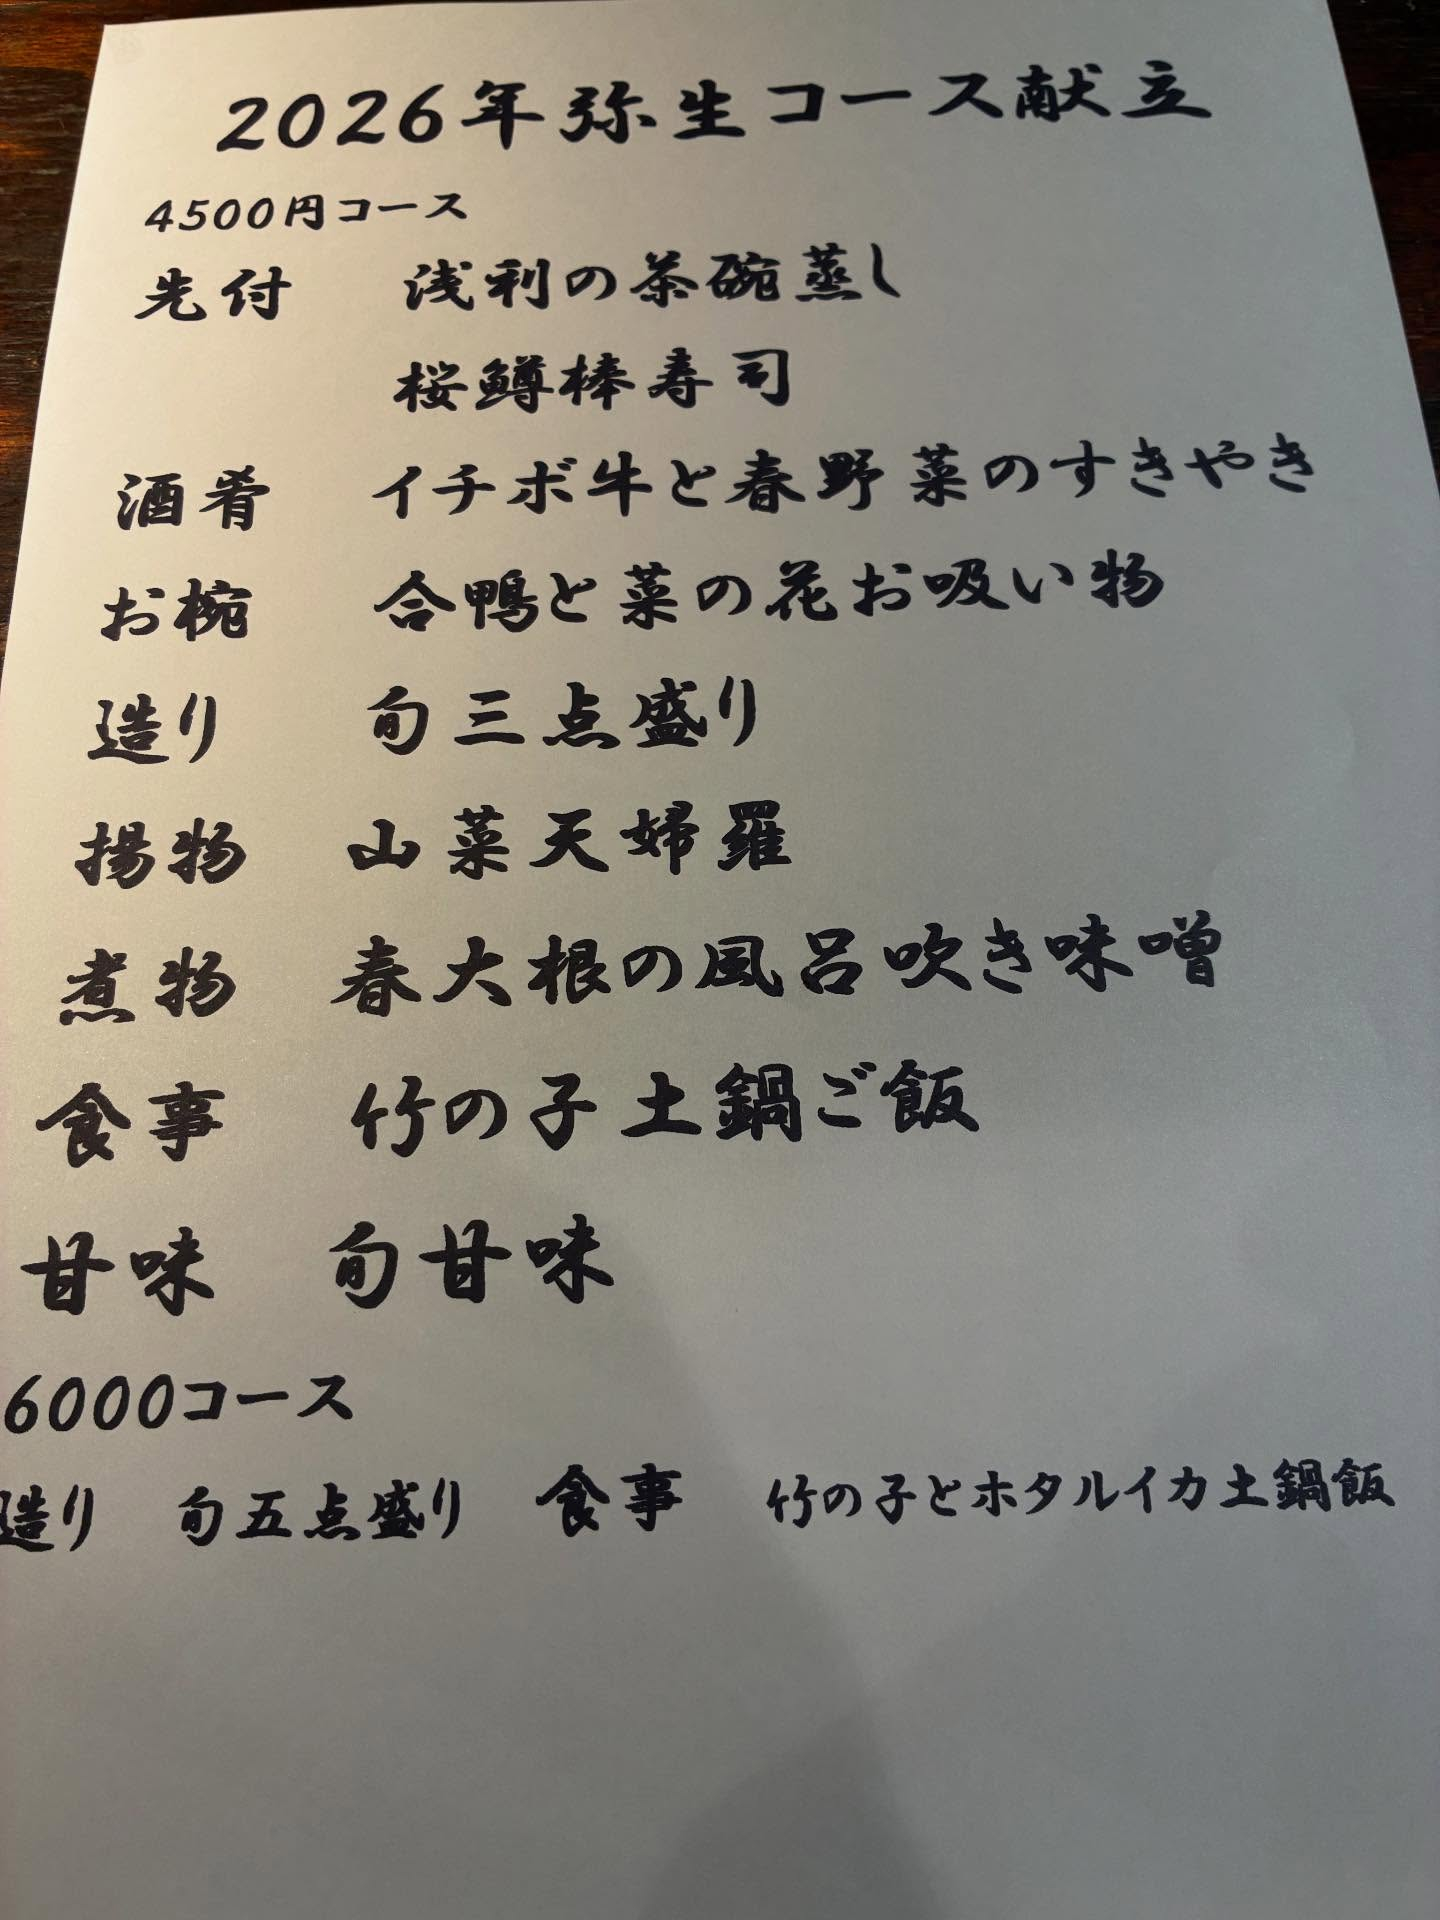 2026年弥生コース献立
4500円コース
先付 浅利の茶碗蒸し
桜鱒棒寿司
酒肴 イチボ牛と春野菜のすきやき
お椀 合鴨と菜の花お吸い物
造り 旬三点盛り
揚物 山菜天婦羅
煮物 春大根の風呂吹き味噌
食事 竹の子土鍋ご飯
甘味 旬甘味
6000コース
造り 旬五点盛り 食事 竹の子とホタルイカ土鍋飯